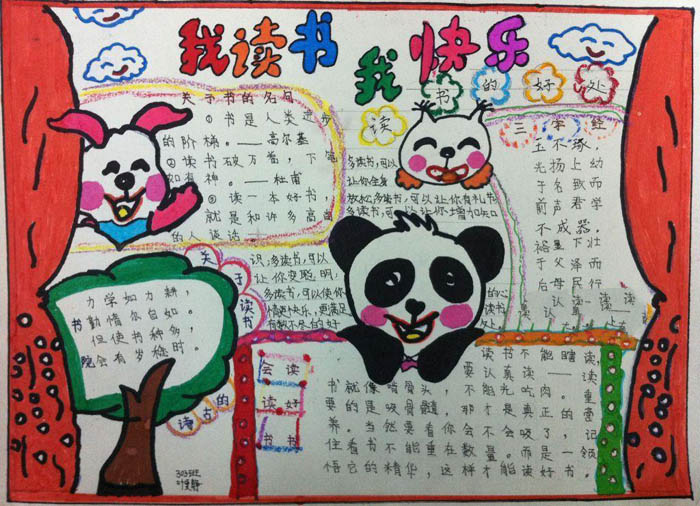 我读书
我快乐
关于书的名句
①书是人类进步
的阶梯。——高尔基
②读书破万卷，下笔
如有神。——杜甫
③读一本好书，
就是和许多高尚
的人谈话。
读书的好处
多读书，可以
让你全身
放松，多读书，可以让你有礼节
多读书，可以让你增加知
识，多读书，可以
让你变聪明，
多读书，可以使你
情更快乐，
有数不尽的好
的心
读书
处。
三字经
玉不琢
光扬上幼
于名致而
前声君学
不成器。
裕显下壮
于父泽而
后母民行
关于读书
读古的
力学如力耕，
勤惰尔自知。
但使书种多，
会有岁稔时。
书院
会读
读好
书书
读书不能瞎读，
要认真读——读
书就像啃骨头，不能光吃肉。重
要的是吸骨髓，那才是真正的营
养。当然要看你会不会吸了，记
住看书不能重在数量。而是一领
悟它的精华，这样才能读好书。
303班